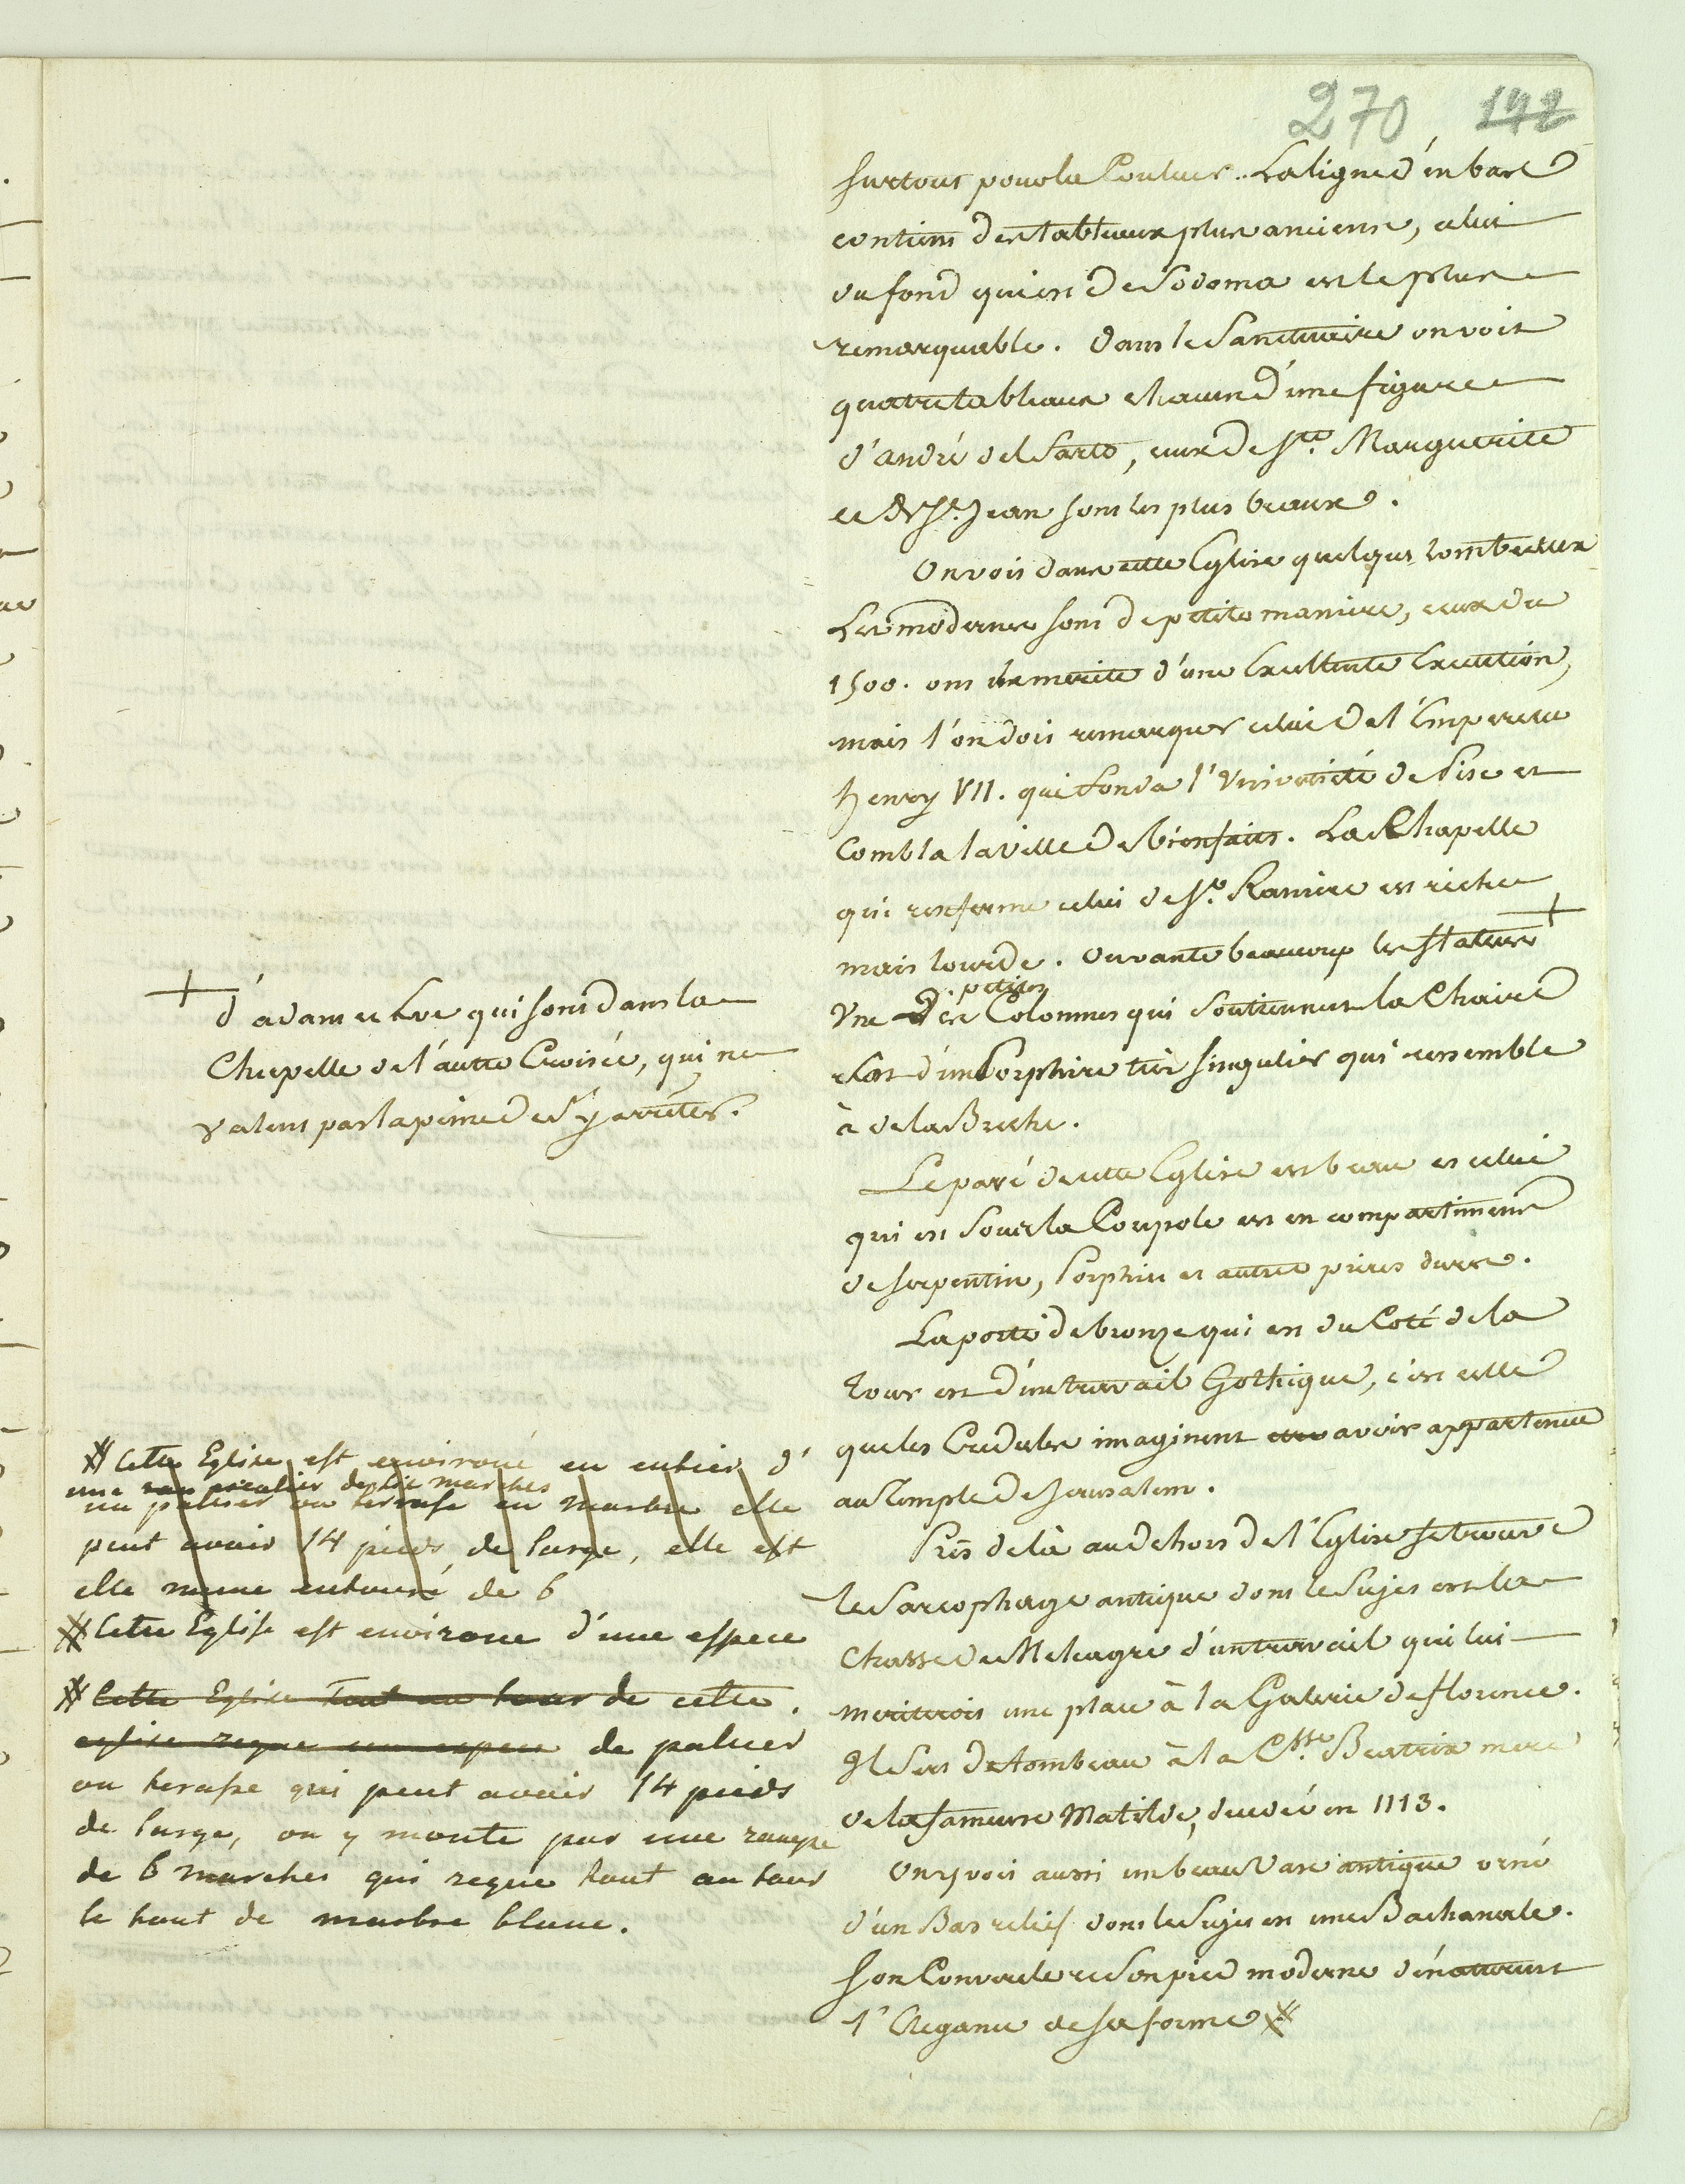 270 142
surtout pour la Couleur. La ligne d'en bas
contient des tableaux plus anciens, celui
du fond qui est de Sodoma est le plus
remarquable. dans le Sanctuaire on voit
quatre tableaux chacun d'une figure
d'andré del Sarto, ceux de Ste. Marguerite
et de St. Jean sont les plus beaux.
On voit dans cette Eglise quelques tombeaux
Les modernes sont de petite maniere, ceux de
1500. ont le merite d'une Excellente Execution,
mais l'on doit remarquer celui de l'Empereur
henry VII. qui fonda l'Université de Pise et
Combla la ville de bienfaits. La Chapelle
qui renferme celui de St. Raniere est riche
mais lourde. on vante beaucoup les statues +
+ d'adam et Eve qui sont dans la
Chapelle de l'autre Croisée, qui ne
valent pas la peine de s'y arrêter.
petites
Une des Colonnes qui soutiennent la Chaire
est d'un Porphire très singulier qui ressemble
à de la Breche.
Le pavé de cette Eglise est beau et celui
qui est sous la Coupole est en compartimens
de serpentin, Porphire et autres pierres dures.
La porte de bronze qui est du Coté de la
tour est d'un travail Gothique, c'est celle
que les Credules imaginent avoir appartenue
au Temple de Jerusalem.
Près de là au dehors de l'Eglise se trouve
le Sarcophage antique dont le Sujet est la
Chasse de Meleagre d'un travail qui lui
meriterois une place à la Galerie de florence.
Il sert de tombeau à la Csse. Beatrix mere
de la fameuse Matilde, decedé en 1113.
On y voit aussi un beau Vase antique orné
d'un Bas relief dont le Sujet est une Bachanale.
Son Couvercle et son pied moderne dénaturent
l'Elegance de sa forme #
# Cette Eglise est environé en entier d'
une escalier de six marches
un palier ou terrasse en marbre elle
peut avoir 14 pieds de large, elle est
elle meme entouré de 6
# Cette Eglise est environe d'une espece
# Cette Eglise tout au tour de cette.
eglise regne une espece de palier
ou terasse qui peut avoir 14 pieds
de large, on y monte par une rampe
de 6 marches qui regne tout au tour
le tout de marbre blanc.